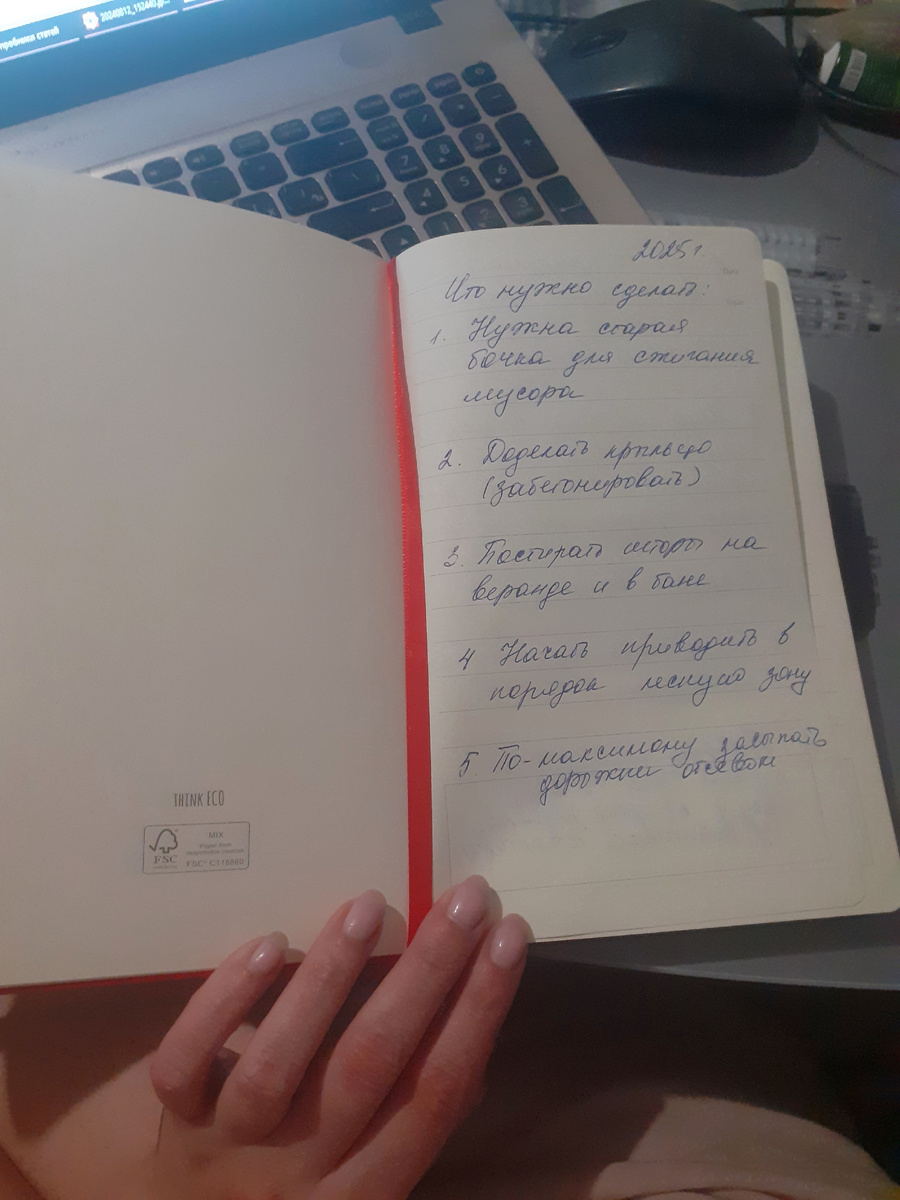 20240812_152440.jp...
2025г.
Что нужно сделать:
1. Нужна старая
бочка для сжигания
мусора
2. Доделать крыльцо
(забетонировать)
3. Постирать шторы на
веранде и в бане
4 Начать приводить в
порядок лесную зону
5. По-максимому засыпать
дорожки отсевом
THINK ECO
MIX
Paper from
responsible sources
FSC
FSC® C118860
7
8
9
+
4
5
6
1
2
3